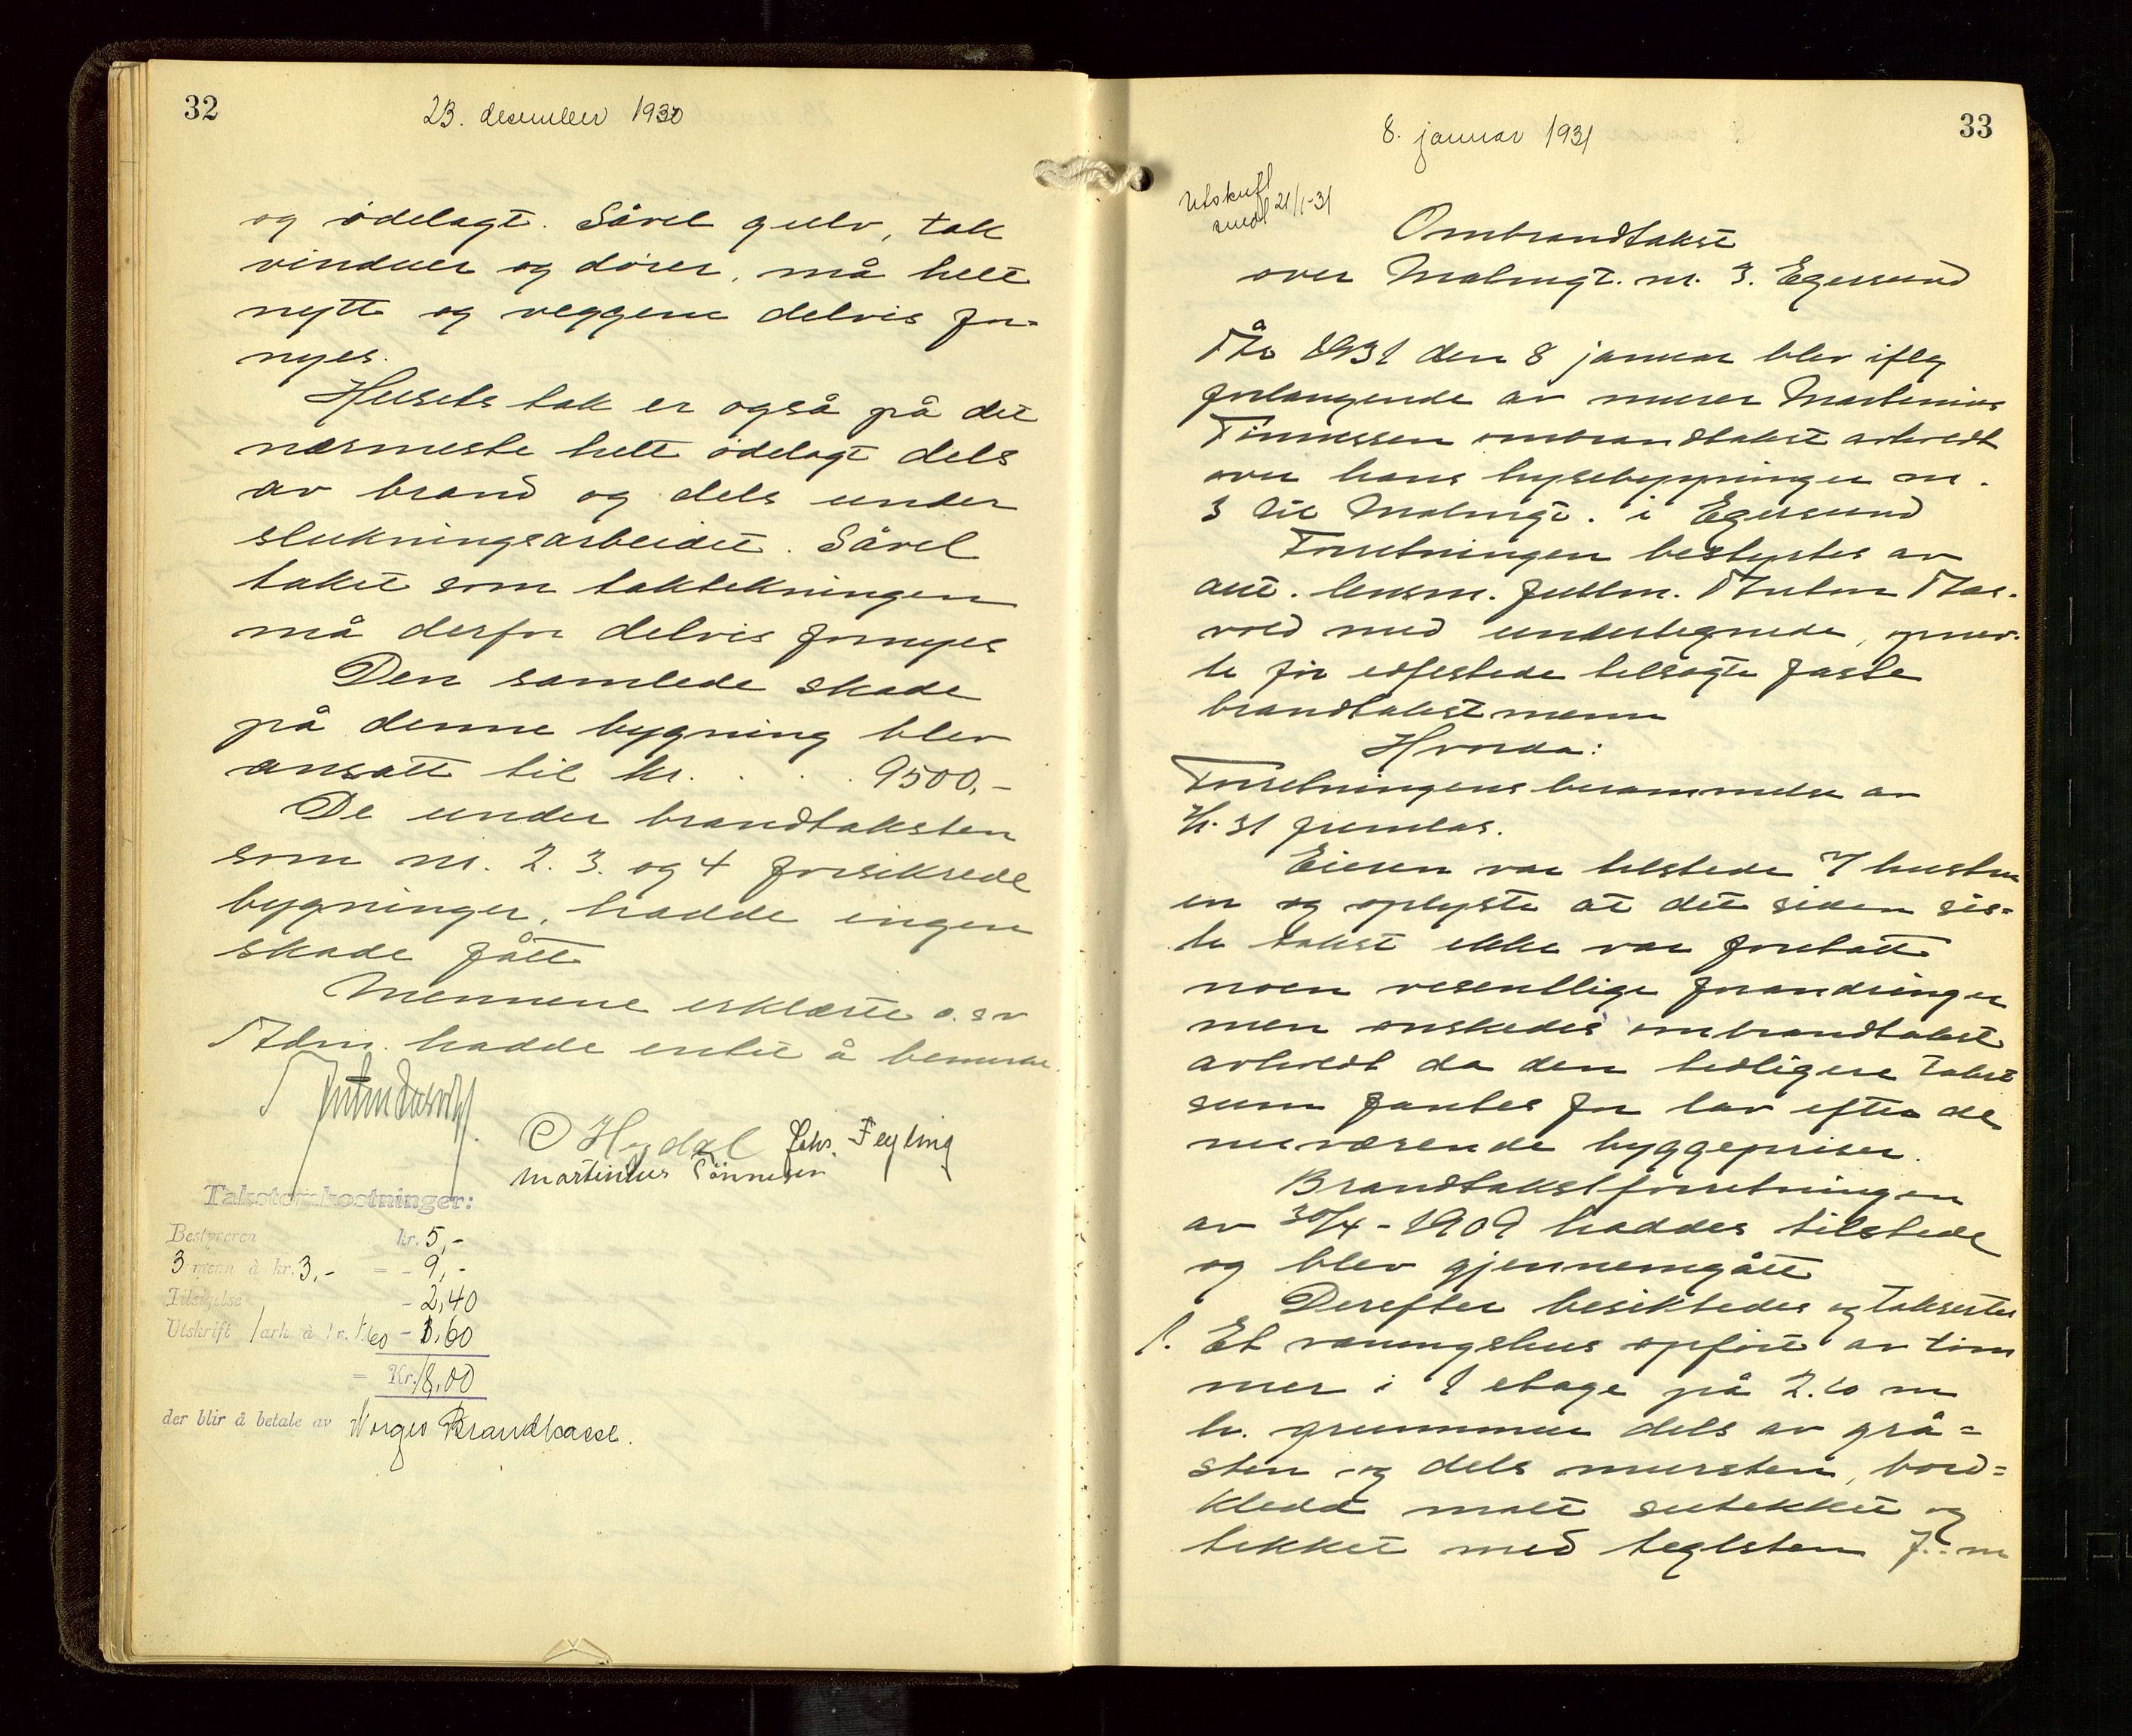 32
23. desember 1930
og ødelagt. Såvel gulv, tak
vinduer og dører, må helt
nytt og veggene delvis for-
nyes.
Husets tak er også på det
nærmeste helt ødelagt dels
av brand og dels under
slukningsarbeidet. Såvel
taket som taktekningen
må derfor delvis fornyes
Den samlede skade
på denne bygning blev
ansatt til kr. . . . 9500,-
De under brandtaksten
som nr. 2. 3. og 4 forsikrede
bygninger, hadde ingen
skade fått
Mennene erklærte o.s.v
Adm. hadde intet å bemerke.
C Hordal Johs. Fegling
Martinius Tönnesen
Takstomkostninger:
Bestyreren kr. 5,-
3 menn à kr. 3,- = - 9,-
Tilsigelse - 2,40
Utskrift 1 ark à kr. 1.60 - 1,60
= Kr. 18,00
der blir å betale av Norges Brandkasse.
33
8. januar 1931
Utskrift
sendt 21/1-31
Ombrandtakst
over Malmgt. nr. 3. Egersund
År 1931 den 8 januar blev iflg
forlangende av murer Martinius
Tönnessen ombrandtakst avholdt
over hans husebygninger nr.
3 til Malmgt. i Egersund
Forretningen bestyrtes av
aut. lensm. fullm. Anton Aas-
vold med undertegnede, opnev-
te før edfestede tilsagte faste
brandtakstmenn
Hvorda:
Forretningens berammelse av
31 fremlas.
Eieren var tilstede v/ hustru
en og oplyste at det siden sis-
te takst ikke var foretatt
noen vesentlige forandringer
men ønskedes ombrandtakst
avholdt da den tidligere takst
sum fantes for lav efter de
nuværende byggepriser.
Brandtakstforretningen
av 30/4 - 1909 haddes tilstede
og blev gjennemgått
Derefter besiktedes og taksertes
1. Et våningshus opført av tøm
mer i 1 etage på 2.10 m
h. grunnmur dels av grå-
sten og dels mursten, bord-
kledd malt sutekket og
tekket med teglsten